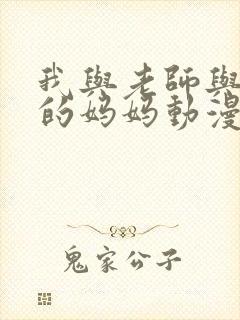 我與老師與
的妈妈動漫
鬼家公子